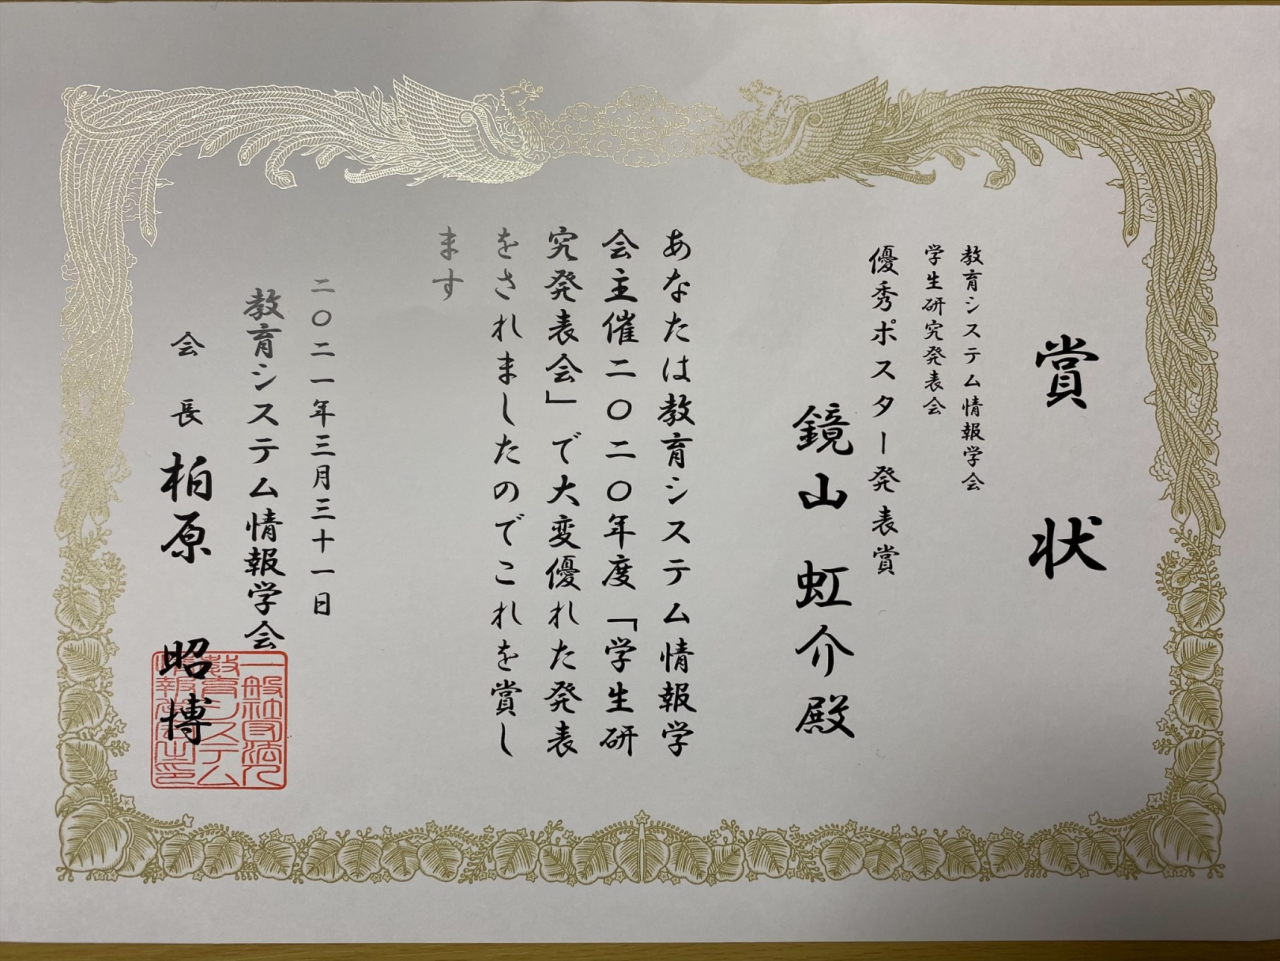 賞状
教育システム情報学会
学生研究発表会
優秀ポスター発表賞
鏡山 虹介殿
あなたは教育システム情報学
会主催二〇二〇年度「学生研
究発表会」で大変優れた発表
をされましたのでこれを賞し
ます
二〇二一年三月三十一日
教育システム情報学会
会長 柏原 昭博